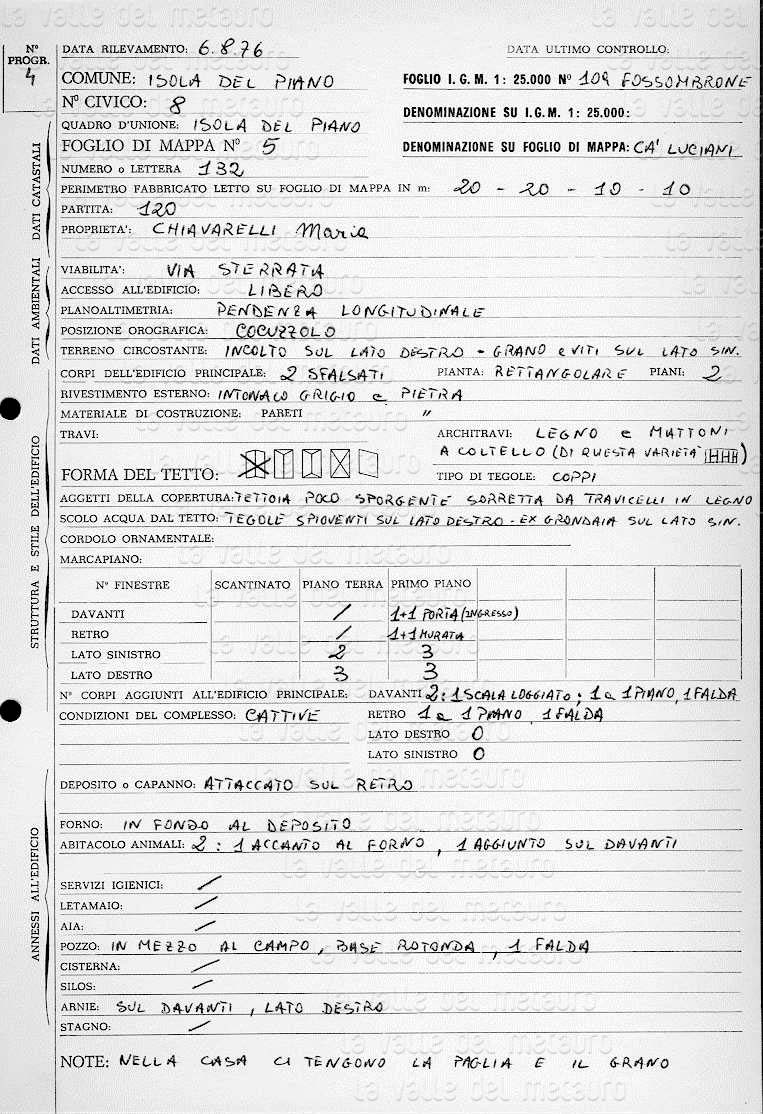 N° PROGR. 4
DATA RILEVAMENTO: 6.8.76 DATA ULTIMO CONTROLLO:
COMUNE: ISOLA DEL PIANO FOGLIO I.G.M. 1: 25.000 N° 109 FOSSOMBRONE
N° CIVICO: 8 DENOMINAZIONE SU I.G.M. 1: 25.000:
QUADRO D'UNIONE: ISOLA DEL PIANO
FOGLIO DI MAPPA N° 5 DENOMINAZIONE SU FOGLIO DI MAPPA: CA' LUCIANI
NUMERO o LETTERA 132
PERIMETRO FABBRICATO LETTO SU FOGLIO DI MAPPA IN m: 20 - 20 - 10 - 10
PARTITA: 120
PROPRIETA': CHIAVARELLI Maria
DATI CATASTALI
VIABILITA': VIA STERRATA
ACCESSO ALL'EDIFICIO: LIBERO
PLANOALTIMETRIA: PENDENZA LONGITUDINALE
POSIZIONE OROGRAFICA: COCUZZOLO
TERRENO CIRCOSTANTE: INCOLTO SUL LATO DESTRO - GRANO e VITI SUL LATO SIN.
DATI AMBIENTALI
CORPI DELL'EDIFICIO PRINCIPALE: 2 SFALSATI PIANTA: RETTANGOLARE PIANI: 2
RIVESTIMENTO ESTERNO: INTONACO GRIGIO e PIETRA
MATERIALE DI COSTRUZIONE: PARETI "
TRAVI: ARCHITRAVI: LEGNO e MATTONI
A COLTELLO (DI QUESTA VARIETA' )
FORMA DEL TETTO: TIPO DI TEGOLE: COPPI
AGGETTI DELLA COPERTURA: TETTOIA POCO SPORGENTE SORRETTA DA TRAVICELLI IN LEGNO
SCOLO ACQUA DAL TETTO: TEGOLE SPIOVENTI SUL LATO DESTRO - EX GRONDAIA SUL LATO SIN.
CORDOLO ORNAMENTALE:
MARCAPIANO:
N° FINESTRE SCANTINATO PIANO TERRA PRIMO PIANO
DAVANTI / 1+1 PORTA (INGRESSO)
RETRO / 1+1 MURATA
LATO SINISTRO 2 3
LATO DESTRO 3 3
N° CORPI AGGIUNTI ALL'EDIFICIO PRINCIPALE: DAVANTI 2: 1 SCALA LOGGIATO; 1 a 1 PIANO, 1 FALDA
CONDIZIONI DEL COMPLESSO: CATTIVE RETRO 1 a 1 PIANO, 1 FALDA
LATO DESTRO 0
LATO SINISTRO 0
STRUTTURA E STILE DELL'EDIFICIO
DEPOSITO o CAPANNO: ATTACCATO SUL RETRO
FORNO: IN FONDO AL DEPOSITO
ABITACOLO ANIMALI: 2: 1 ACCANTO AL FORNO, 1 AGGIUNTO SUL DAVANTI
SERVIZI IGIENICI: /
LETAMAIO: /
AIA: /
POZZO: IN MEZZO AL CAMPO, BASE ROTONDA, 1 FALDA
CISTERNA: /
SILOS: /
ARNIE: SUL DAVANTI, LATO DESTRO
STAGNO: /
ANNESSI ALL'EDIFICIO
NOTE: NELLA CASA CI TENGONO LA PAGLIA E IL GRANO
la valle del metauro